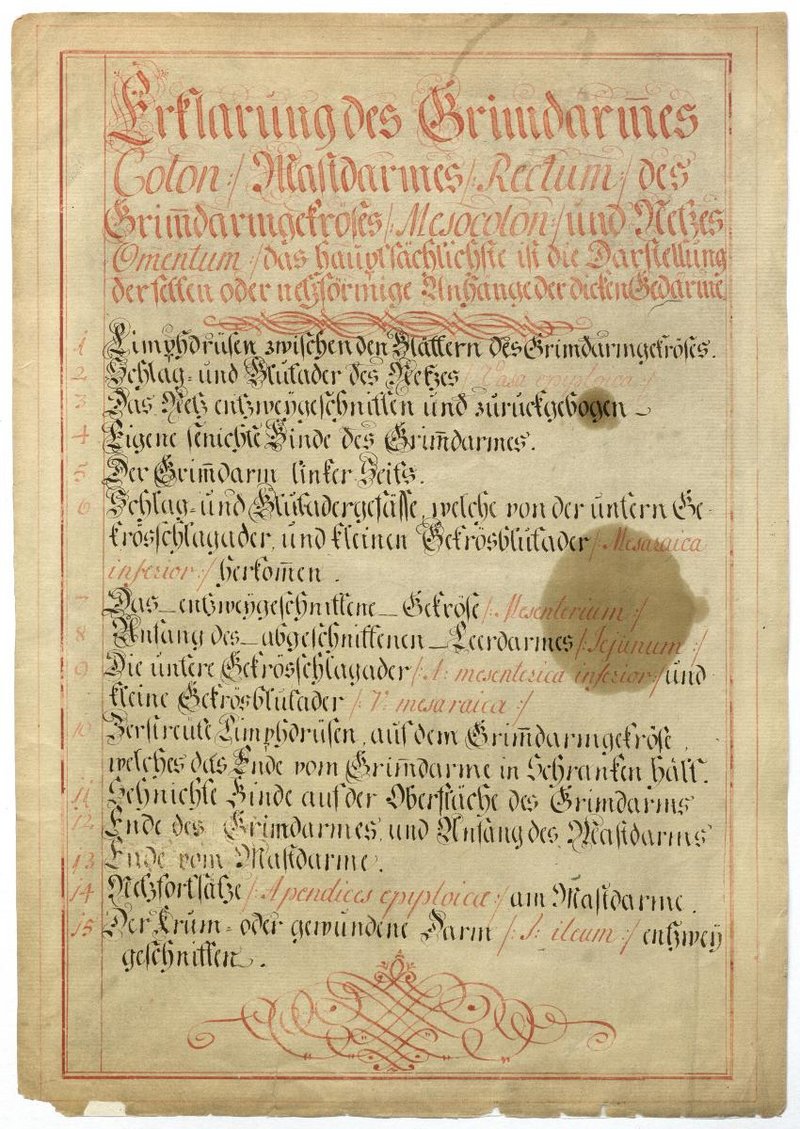 Erklärung des Grim̄darmes
Colon :/ Mastdarmes /: Rectum :/ des
Grim̄darmgekröses /: Mesocolon :/ und Netzes
Omentum :/ das hauptsächlichste ist die Darstellung
der fetten oder netzförmige Anhange der dicken Gedärme
1 Limphdrüsen zwischen den Blättern des Grimdarmgekröses.
2 Schlag= und Blutader des Netzes /: Vasa epiploica :/
3 Das Netz entzweygeschnitten und zurückgebogen –
4 Eigene senichte Binde des Grim̄darmes.
5 Der Grim̄darm linker Seits.
6 Schlag= und Blutadergefässe, welche von der untern Ge-
krösschlagader, und kleinen Gekrösblutader /: Mesaraica
inferior :/ herkom̄en .
7 Das – entzweygeschnittene – Gekröse /: Mesenterium :/
8 Anfang des – abgeschnittenen – Leerdarmes /: Jejunum :/
9 Die untere Gekrösschlagader /: A: mesenterica inferior :/ und
kleine Gekrösblutader /: V: mesaraica :/
10 Zerstreute Limphdrüsen, auf dem Grim̄darmgekröse,
welches das Ende vom Grim̄darme in Schranken hält.
11 Sehnichte Binde auf der Oberfläche des Grimdarms
12 Ende des Grimdarmes, und Anfang des Mastdarms
13 Ende vom Mastdarme.
14 Netzfortsätze /: Apendices epiploicæ :/ am Mastdarme .
15 Der Krum= oder gewundene Darm /: J: ileum :/ entzwey
geschnitten .